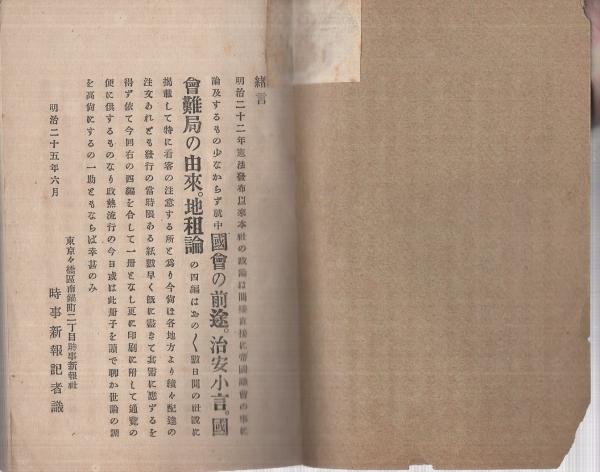 緒言
明治二十二年憲法發布以來本社の政論は間接直接に帝國議會の事に
論及するもの少なからず就中國會の前途。治安小言。國
會難局の由來。地租論の四編はおの〱數日間の社說に
揭載して特に看客の注意する所と爲り今尙ほ各地方より續々配達の
注文あれども發行の當時限ある紙數早く旣に盡きて其需に應ずるを
得ず依て今回右の四編を合して一冊となし更に印刷に附して通覽の
便に供するものなり政熱流行の今日或は此冊子を讀で聊か世論の調
を高尙にするの一助ともならば幸甚のみ
明治二十五年六月
東京々橋區南鍋町二丁目時事新報社
時事新報記者識